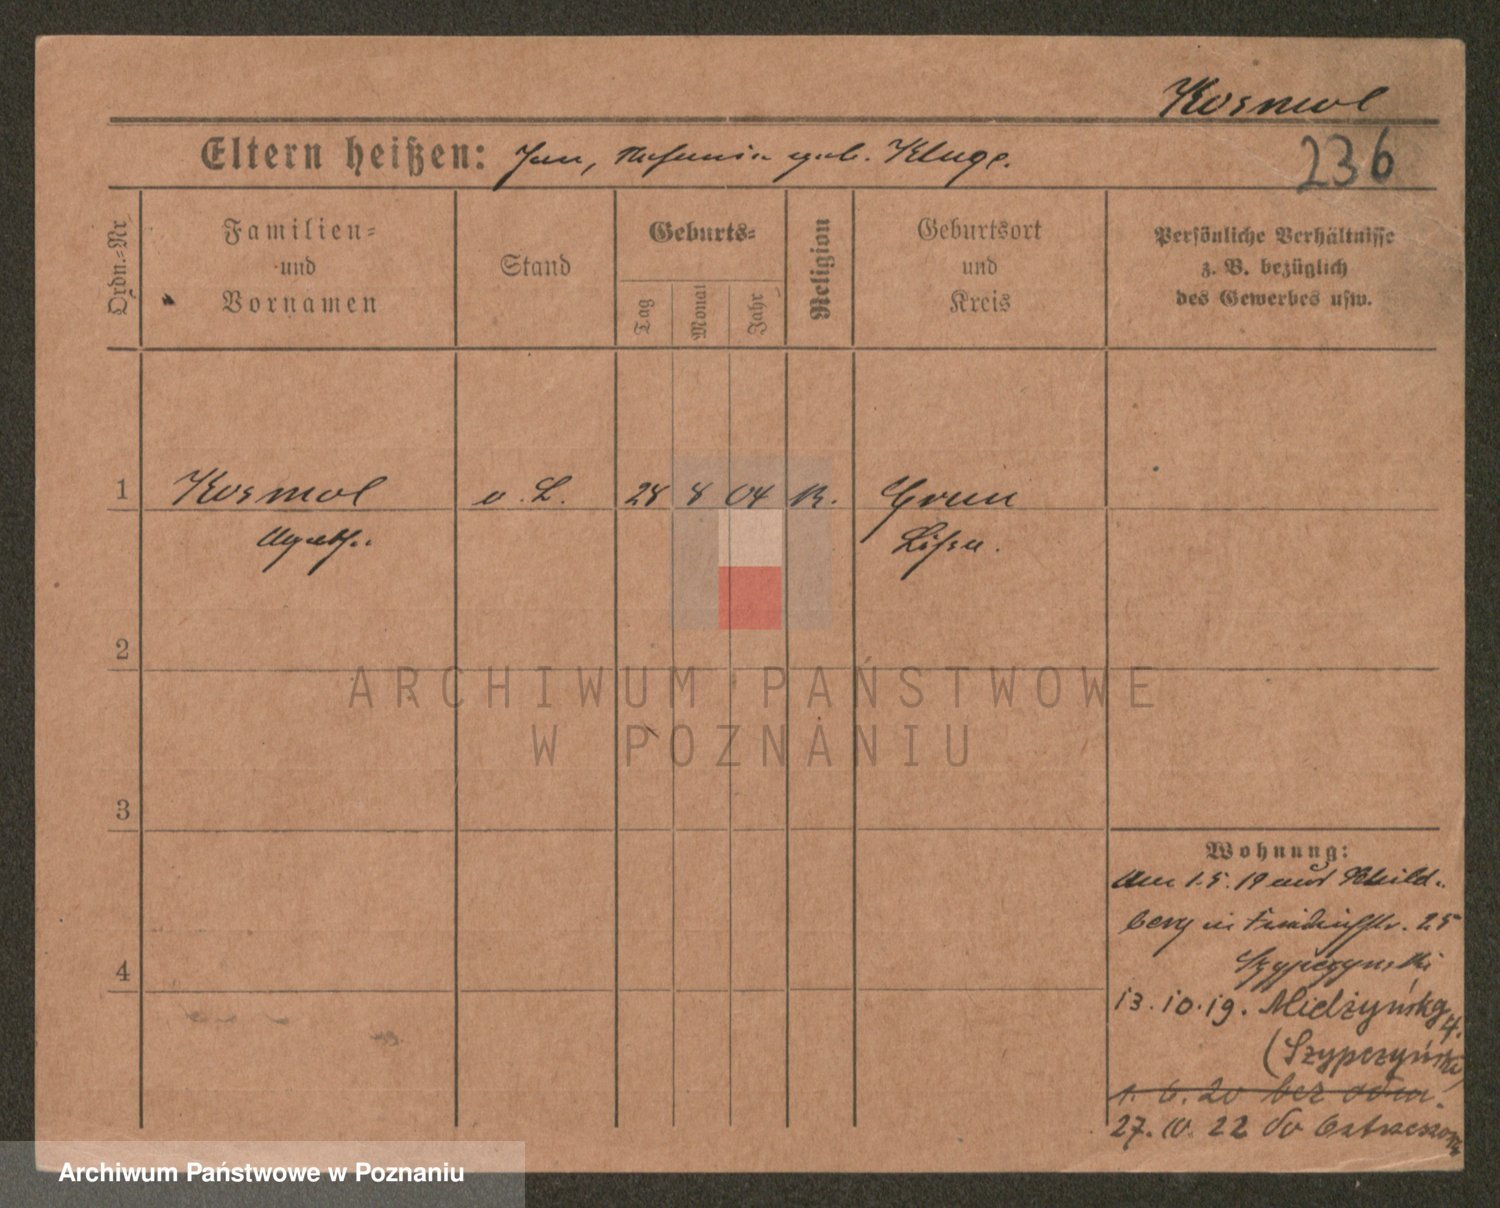 Kosmol
Eltern heißen: Jan, geb. Kluge.
236
Ordn.-Nr
Familien-
und
Vornamen
Stand
Geburts-
Tag
Monat
Jahr
Religion
Geburtsort
und
Kreis
Persönliche Verhältnisse
z. B. bezüglich
des Gewerbes usw.
1 Kosmol o. L. 28 8 04 K.
Agath..
2
ARCHIWUM PAŃSTWOWE
W POZNANIU
3
Wohnung:
Am 1.5.19 aus Schild-
berg in Friedrichstr. 25
Szypczynski
4
13.10.19. Miedżyńskg 4.
(Szypczyński)
1. 6. 20 bez odm.
27. 10. 22 do
Archiwum Państwowe w Poznaniu